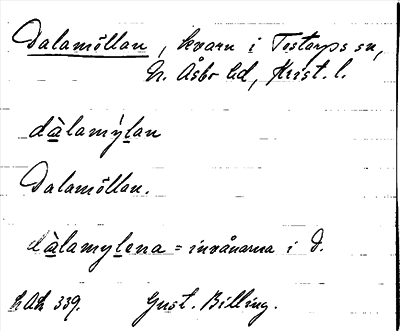 Dalamöllan, kvarn i Tostarps sn,
N. Åsbo hd, Krist. l.
dàlamýlan
Dalamöllan.
dàlamylena = invånarna i D.
LAL 339. Gust. Billing.